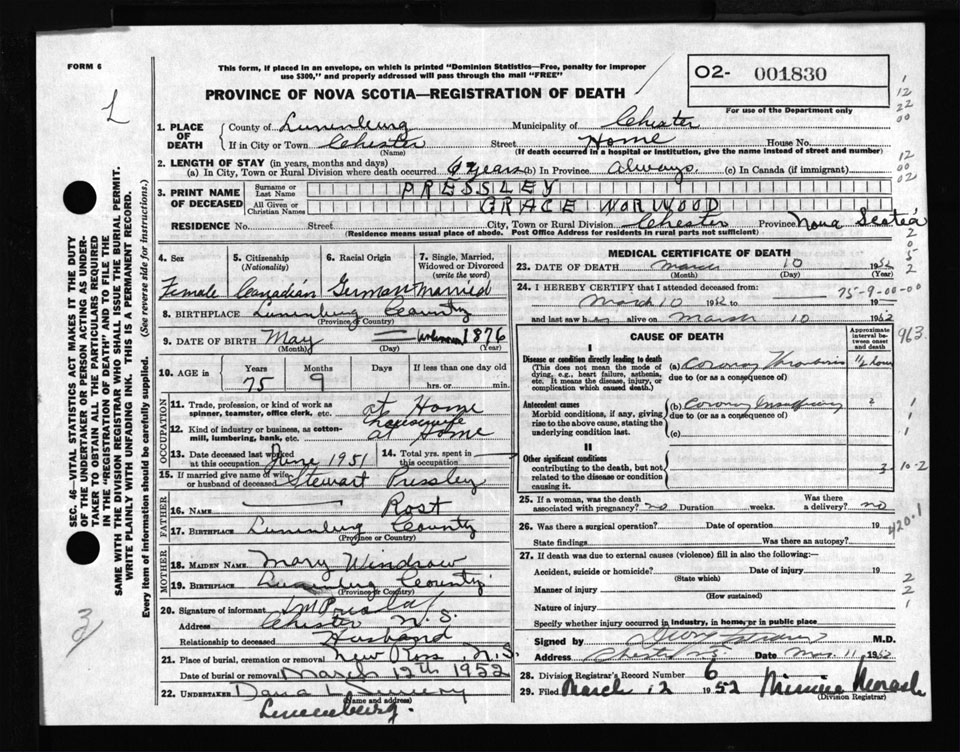 FORM 6
This form, if placed in an envelope, on which is printed "Dominion Statistics—Free, penalty for improper
use $300," and properly addressed will pass through the mail "FREE"
O2- 001830
PROVINCE OF NOVA SCOTIA—REGISTRATION OF DEATH
For use of the Department only
1. PLACE OF DEATH
County of Lunenburg Municipality of Chester
If in City or Town Chester Street Home House No.
(Name) (If death occurred in a hospital or institution, give the name instead of street and number)
2. LENGTH OF STAY (in years, months and days)
(a) In City, Town or Rural Division where death occurred years (b) In Province always (c) In Canada (if immigrant)
3. PRINT NAME OF DECEASED
Surname or Last Name PRESSLEY
All Given or Christian Names GRACE NORWOOD
RESIDENCE No. Street City, Town or Rural Division Chester Province Nova Scotia
(Residence means usual place of abode. Post Office Address for residents in rural parts not sufficient)
4. Sex 5. Citizenship (Nationality) 6. Racial Origin 7. Single, Married, Widowed or Divorced (write the word)
Female Canadian German Married
8. BIRTHPLACE Lunenburg County
(Province or Country)
9. DATE OF BIRTH May — unknown 1876
(Month) (Day) (Year)
10. AGE in Years Months Days If less than one day old
75 9 hrs. or min.
OCCUPATION
11. Trade, profession, or kind of work as spinner, teamster, office clerk, etc. at Home
housewife
12. Kind of industry or business, as cotton-mill, lumbering, bank, etc. at Home
13. Date deceased last worked at this occupation June 1951 14. Total yrs. spent in this occupation
15. If married give name of wife or husband of deceased Stewart Pressley
FATHER
16. Name — Rost
17. Birthplace Lunenburg County
(Province or Country)
MOTHER
18. Maiden Name Mary Windrow
19. Birthplace Lunenburg County
(Province or Country)
20. Signature of informant
Address Chester N.S.
Relationship to deceased Husband
21. Place of burial, cremation or removal New Ross, N.S.
Date of burial or removal March 12th 1952
22. UNDERTAKER Dana L.
(Name and address)
Lunenburg.
MEDICAL CERTIFICATE OF DEATH
23. DATE OF DEATH March 10 1952
(Month) (Day)
24. I HEREBY CERTIFY that I attended deceased from:
March 10 1952 19
and last saw h alive on March 10 1952
75-9-00-00
CAUSE OF DEATH
Approximate interval between onset and death
963
I
Disease or condition directly leading to death
(This does not mean the mode of dying, e.g., heart failure, asthenia, etc. It means the disease, injury, or complication which caused death.)
(a) Coronary Thrombosis 1/2 hour
due to (or as a consequence of)
Antecedent causes
Morbid conditions, if any, giving rise to the above cause, stating the underlying condition last.
(b) Coronary Insufficiency ?
due to (or as a consequence of)
(c)
II
Other significant conditions
contributing to the death, but not related to the disease or condition causing it.
3-10-2
25. If a woman, was the death associated with pregnancy? no Duration weeks. Was there a delivery? no
26. Was there a surgical operation? Date of operation 19
State findings Was there an autopsy?
420.1
27. If death was due to external causes (violence) fill in also the following:—
Accident, suicide or homicide? Date of injury 19
(State which)
Manner of injury
(How sustained)
Nature of injury
Specify whether injury occurred in industry, in home, or in public place
Signed by M.D.
Address Chester N.S. Date Mar. 11 1952
28. Division Registrar's Record Number 6
29. Filed March 12 1952
(Division Registrar)
SEC. 46—VITAL STATISTICS ACT MAKES IT THE DUTY
OF THE UNDERTAKER OR PERSON ACTING AS UNDER-
TAKER TO OBTAIN ALL THE PARTICULARS REQUIRED
IN THE "REGISTRATION OF DEATH" AND TO FILE THE
SAME WITH THE DIVISION REGISTRAR WHO SHALL ISSUE THE BURIAL PERMIT.
WRITE PLAINLY WITH UNFADING INK. THIS IS A PERMANENT RECORD.
Every item of information should be carefully supplied. (See reverse side for instructions.)